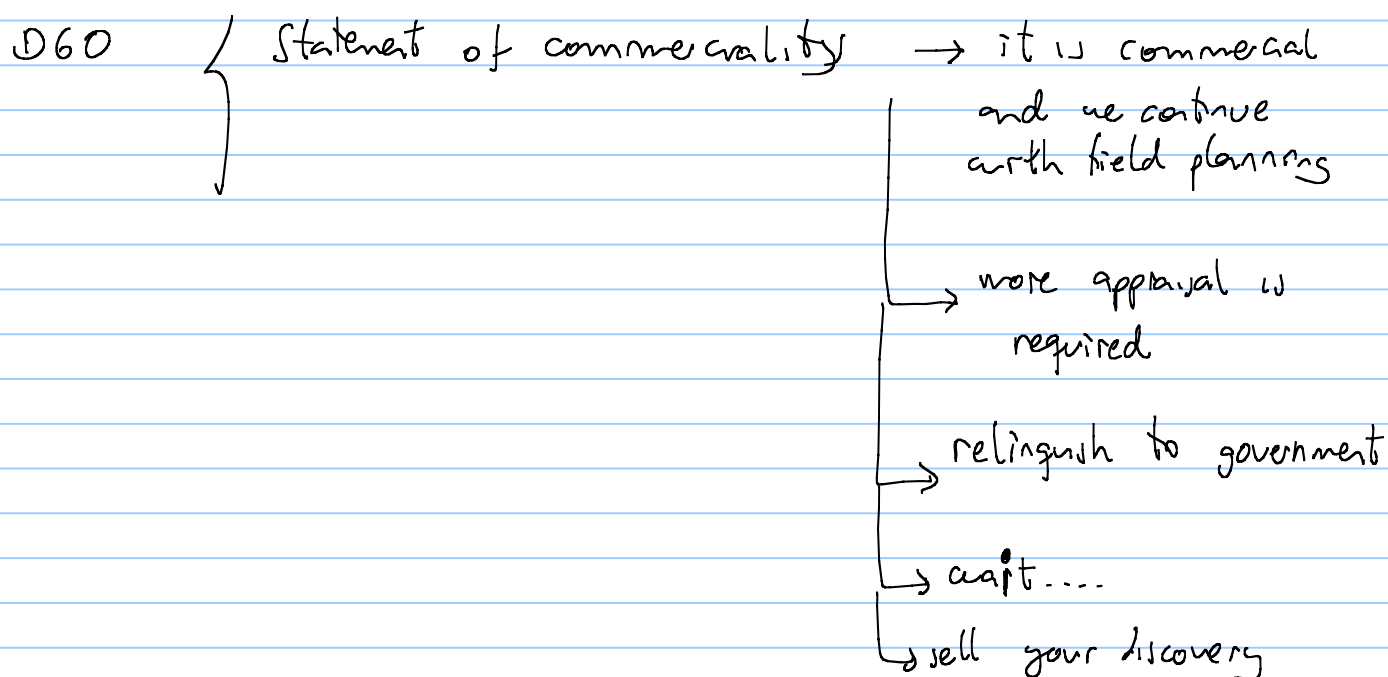 DG0 { Statement of commerciality → it is commercial
and we continue
with field planning
→ more appraisal is
required
→ relinquish to government
→ wait....
→ sell your discovery